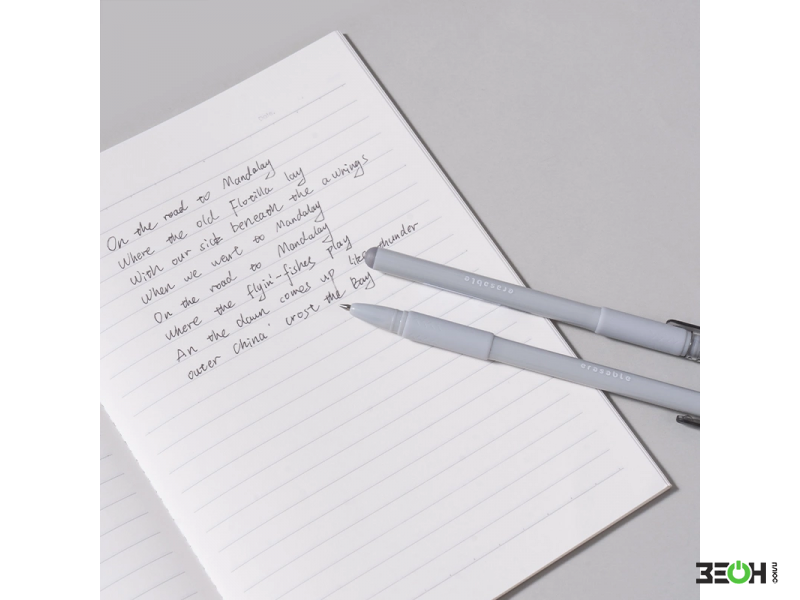 On the road to Mandalay
Where the old Flotilla lay
With our sick beneath the awnings
When we went to Mandalay
On the road to Mandalay
where the flyin'-fishes play
An the dawn comes up like thunder
outer China' crost the Bay
erasable
erasable
ЗЕОН
плюс